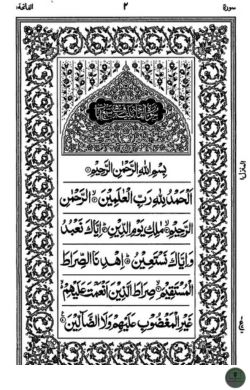 سورة ٢ الفاتحة
بِسْمِ اللّٰهِ الرَّحْمٰنِ الرَّحِيْمِ
اَلْحَمْدُ لِلّٰهِ رَبِّ الْعٰلَمِيْنَ ۙ الرَّحْمٰنِ
الرَّحِيْمِ ۙ مٰلِكِ يَوْمِ الدِّيْنِ ؕ اِيَّاكَ نَعْبُدُ
وَاِيَّاكَ نَسْتَعِيْنُ ؕ اِهْدِنَا الصِّرَاطَ
الْمُسْتَقِيْمَ ۙ صِرَاطَ الَّذِيْنَ اَنْعَمْتَ عَلَيْهِمْ
غَيْرِ الْمَغْضُوْبِ عَلَيْهِمْ وَلَا الضَّآلِّيْنَ